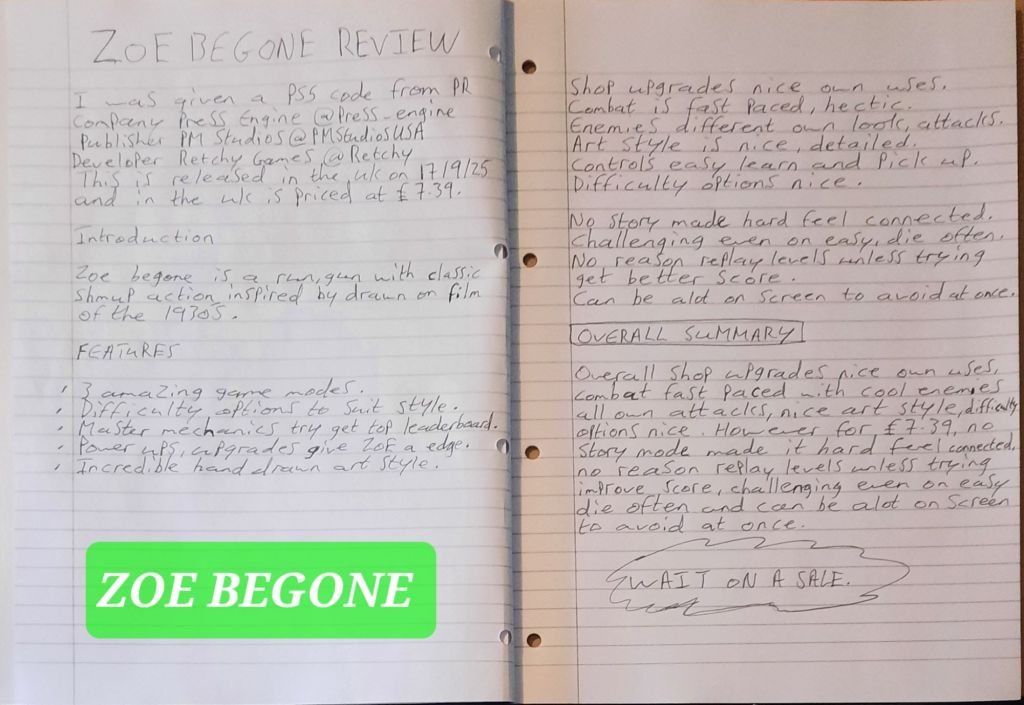 ZOE BEGONE REVIEW
I was given a PS5 code from PR
Company Press Engine @Press_engine
Publisher PM Studios @PMStudiosUSA
Developer Retchy Games, @Retchy
This is released in the uk on 17/9/25
and in the uk is priced at £7.39.
Introduction
Zoe begone is a run, gun with classic
shmup action inspired by drawn on film
of the 1930s.
FEATURES
, 3 amazing game modes.
, Difficulty options to suit style.
, Master mechanics try get top leaderboard.
, Power ups, upgrades give ZOE a edge.
, Incredible hand drawn art style.
ZOE BEGONE
Shop upgrades nice own uses.
Combat is fast paced, hectic.
Enemies different own look, attacks.
Art Style is nice, detailed.
Controls easy learn and pick up.
Difficulty options nice.
No story made hard feel connected.
Challenging even on easy, die often.
No reason replay levels unless trying
get better score.
Can be alot on screen to avoid at once.
OVERALL SUMMARY
Overall Shop upgrades nice own uses,
combat fast paced with cool enemies
all own attacks, nice art style, difficulty
options nice. However for £7.39, no
story mode made it hard feel connected,
no reason replay levels unless trying
improve score, challenging even on easy
die often and can be alot on screen
to avoid at once.
WAIT ON A SALE.